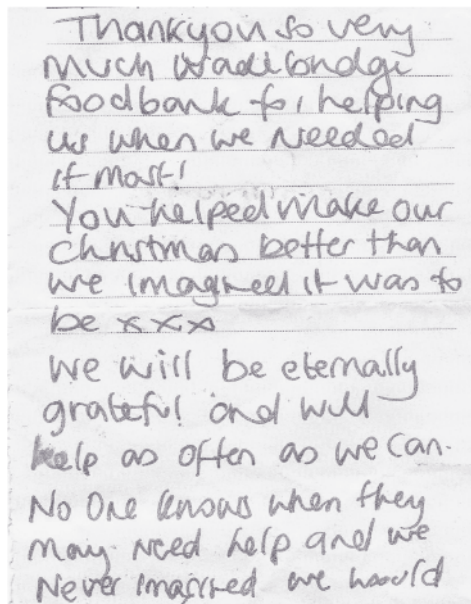 Thankyou so very
much wadebridge
foodbank for helping
us when we needed
it most!
You helped make our
christmas better than
we imagined it was to
be xxx
we will be eternally
grateful and will
help as often as we can.
No One knows when they
may need help and we
Never imagined we would